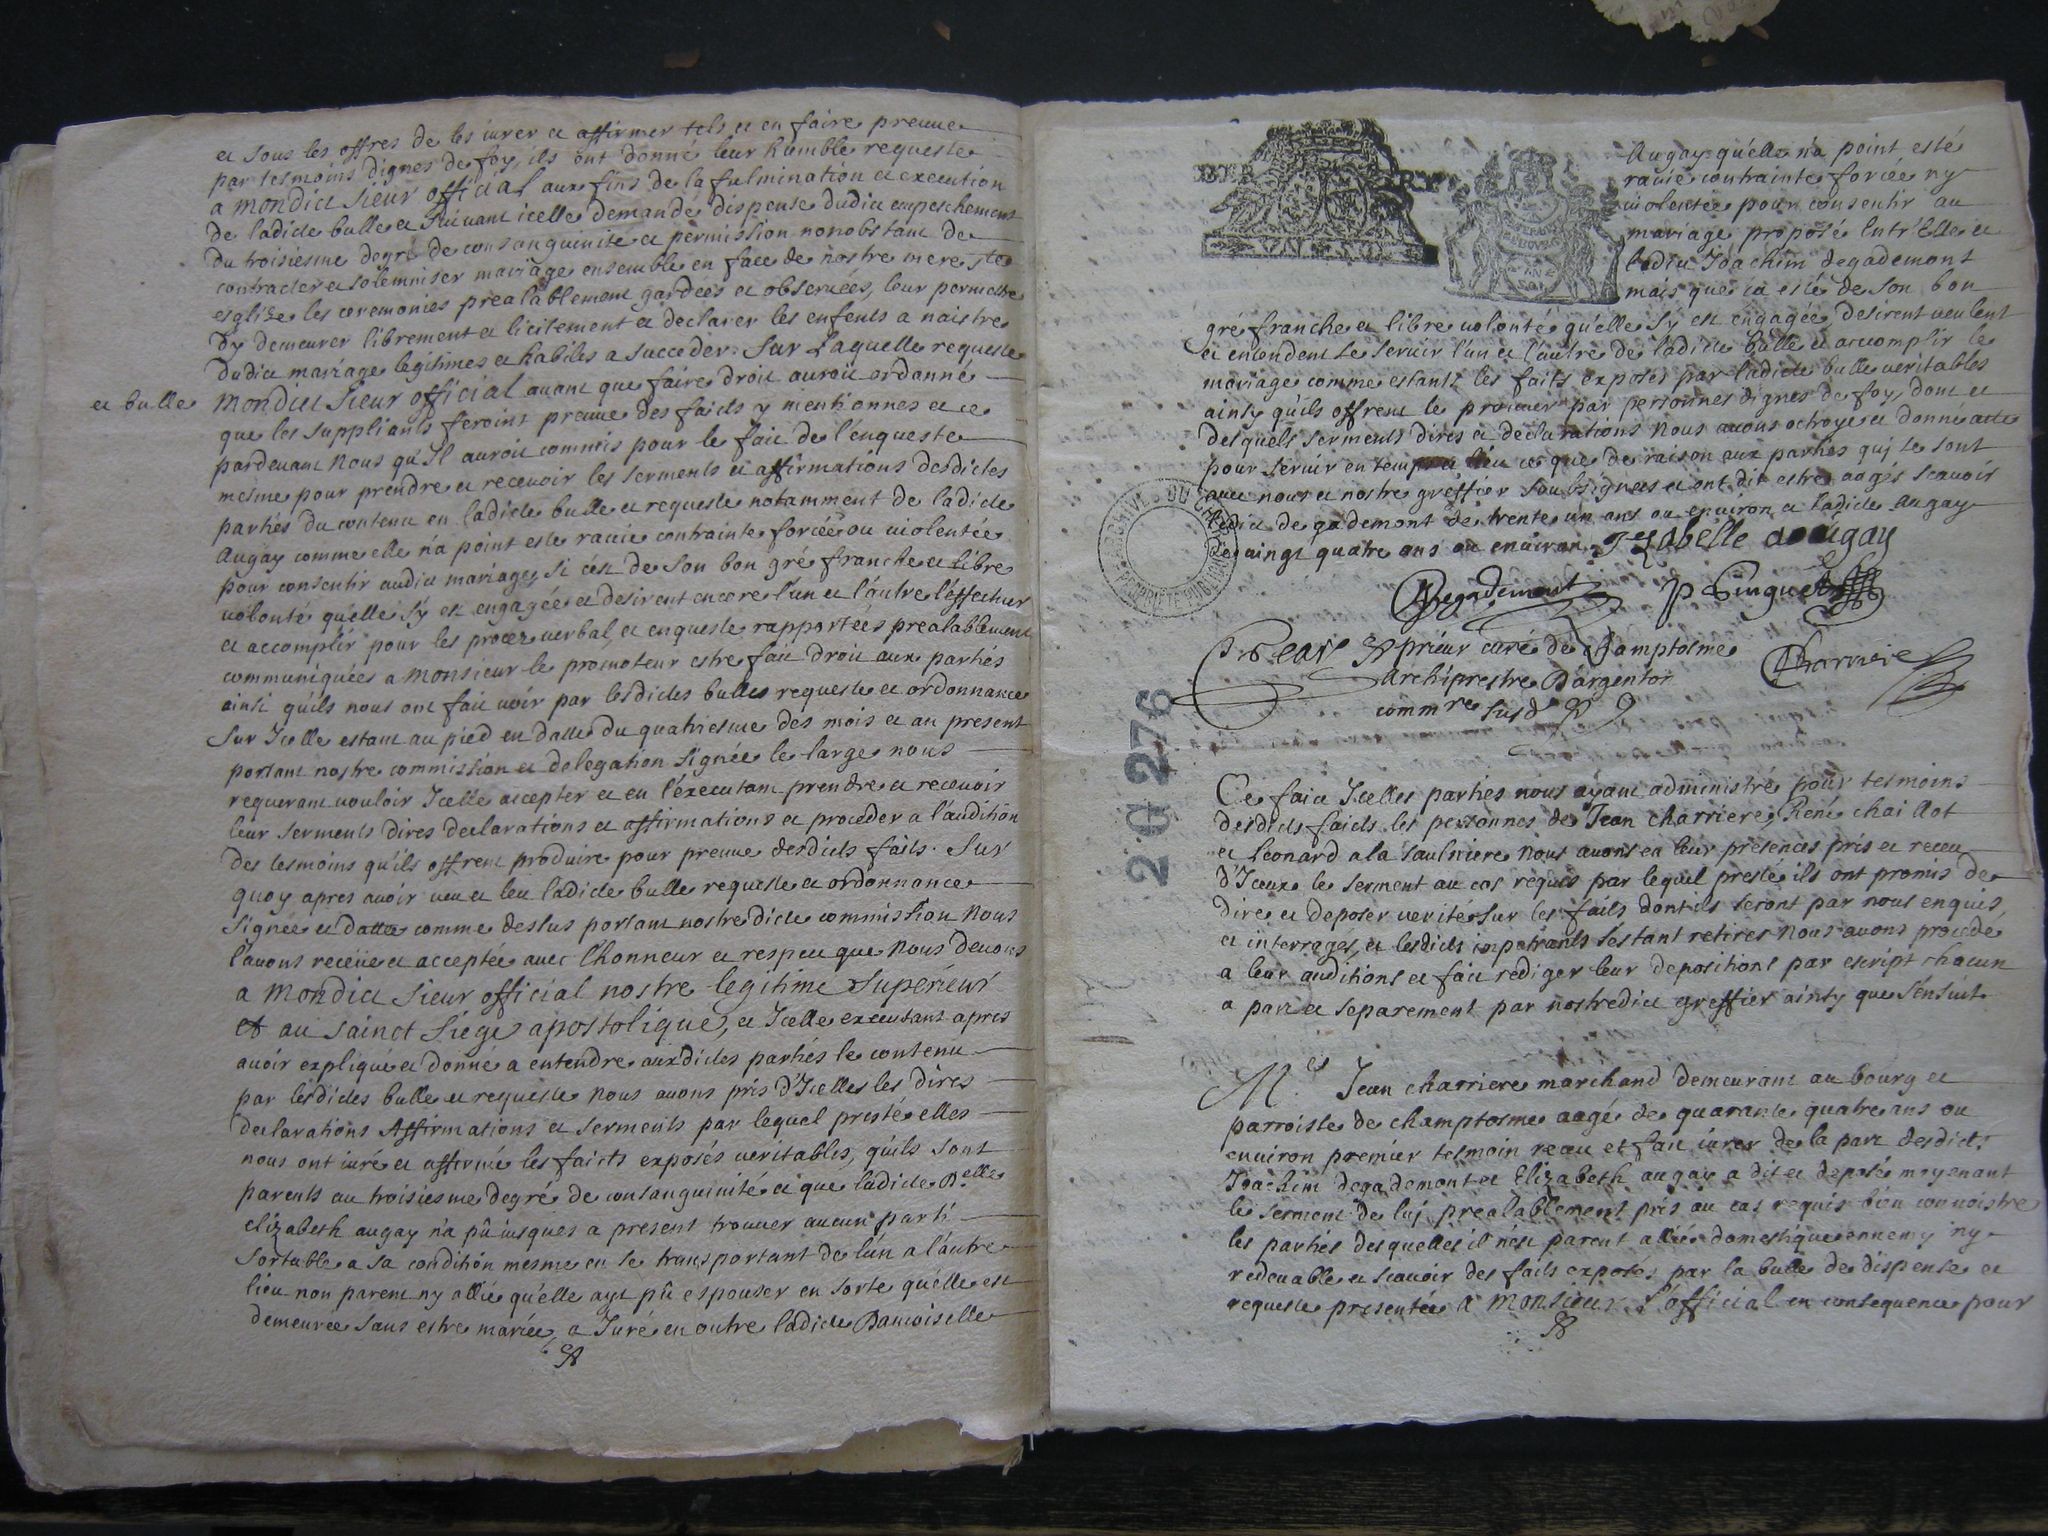 et sous les offres de les iurer et affirmer tels et en faire preuue
par tesmoins dignes de foy, ils ont donné leur humble requeste
a mondict sieur official aux fins de la fulmination et execution
de ladicte bulle et suiuant icelle demandé dispense dudict empeschement
du troisiesme degré de consanguinité et permission nonobstant de
contracter et solemniser mariage ensemble en face de nostre mere ste
esglize les ceremonies prealablement gardées et obseruées, leur permettre
dy demeurer librement et licitement et declarer les enfents a naistre
dudict mariage legitimes et habiles a succeder. Sur Laquelle requeste
et bulle mondict sieur official auant que faire droit auroit ordonné
que les suppliants feroint preuue des faicts y mentionnes et ce
pardeuant nous qu'Il auroit commis pour le fait de l'enqueste
mesme pour prendre et receuoir les serments et affirmations desdictes
parties du contenu en ladicte bulle et requeste notamment de ladicte
Augay comme elle n'a point esté rauie contrainte forcée ou uiolentée
pour consentir audict mariage, si c'est de son bon gré franche et libre
uolonté qu'elle s'y est engagée et desirent encore l'un et l'autre l'effectuer
et accomplir pour les procez uerbal, et enqueste rapportées prealablement
communiquées a monsieur le promoteur estre fait droit aux parties
ainsi qu'ils nous ont fait uoir par lesdictes bulles requeste et ordonnance
sur Icelle estant au pied en datte du quatriesme des mois et an present
portant nostre commission et delegation signée le large nous
requerant uouloir Icelle accepter et en l'executant prendre et receuoir
leur serments dires declarations et affirmations et proceder a l'audition
des tesmoins qu'ils offrent produire pour preuue desdicts faits. Sur
quoy apres auoir ueu et leu ladicte bulle requeste et ordonnance
signée et datée comme dessus portant nostredicte commission nous
l'auons receüe et acceptée auec l'honneur et respect que nous deuons
a mondict sieur official nostre legitime superieur
et au sainct siege apostolique, et Icelle executant apres
auoir expliqué et donné a entendre auxdictes parties le contenu
par lesdictes bulle et requeste nous auons pris d'Icelles les dires
declarations Affirmations et serments par lequel presté elles
nous ont iuré et affirmé les faicts exposés ueritables, qu'ils sont
parents au troisiesme degré de consanguinité et que ladicte Delle
elizabeth augay n'a pû iusques a present trouuer aucun parti
sortable a sa condition mesme en se transportant de l'un a l'autre
lieu non parent ny allié qu'elle ayt pû espouser en sorte qu'elle est
demeurée sans estre mariée, a Iuré en outre ladicte Damoiselle
Augay qu'elle n'a point esté
rauie contrainte forcée ny
uiolentée pour consentir au
mariage proposé Entr'Elle et
ledict Ioachim degademont
mais que ca esté de son bon
gré franche et libre uolonté qu'elle s'y est engagée, desirent ueulent
et entendent se seruir l'un et l'autre de ladicte bulle et accomplir le
mariage comme estants les faits exposés par ladicte bulle ueritables
ainsy qu'ils offrent le prouuer par personnes dignes de foy, dont et
desquels serments dires et declarations nous auons octroyé et donné acte
pour seruir en temps et lieu ce que de raison aux parties quj se sont
auec nous et nostre greffier soubsignées et ont dit estre aagés scauoir
ledict de gademont de trente un ans ou enuiron et ladicte augay
de uingt quatre ans ou enuiron. Izabelle dougay
Degademont P Pinguet
prieur curé de champtosme Charriere
archiprestre D'argenton
commre susd
ARCHIVES DU CHER
PROPRIETE PUBLIQUE
2 G 276
Ce faict Icelles parties nous ayant administré pour tesmoins
desdicts faicts les personnes de Jean charriere, René chaillot
et leonard a la saulniere nous auons en leur presences pris et receu
d'Iceux le serment au cas requis par lequel presté ils ont promis de
dire et deposer uerité sur les faits dont ils seront par nous enquis,
et interrogés, et lesdicts impetrants s'estant retirés nous auons procedé
a leur auditions et fait rediger leur depositions par escript chacun
a part et separement par nostredict greffier ainsy que s'ensuit
Jean charriere marchand demeurant au bourg et
parroisse de champtosme aagé de quarante quatre ans ou
enuiron premier tesmoin receu et fait iurer de la part desdicts
Ioachim degademont et Elizabeth augay a dit et deposé moyenant
le serment de luj prealablement pris au cas requis bien connoistre
les parties desquelles il n'est parent allié domestique ennemy ny
redeuable et scauoir des faits exposés par la bulle de dispense et
requeste presentée a monsieur l'official en consequence pour